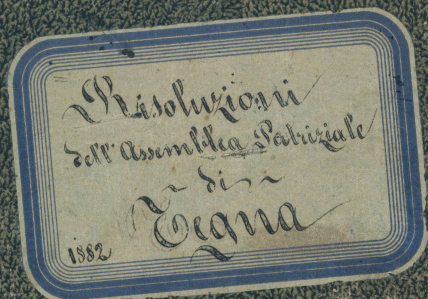 Risoluzioni
dell'Assemblea Patriziale
di
Tegna
1882